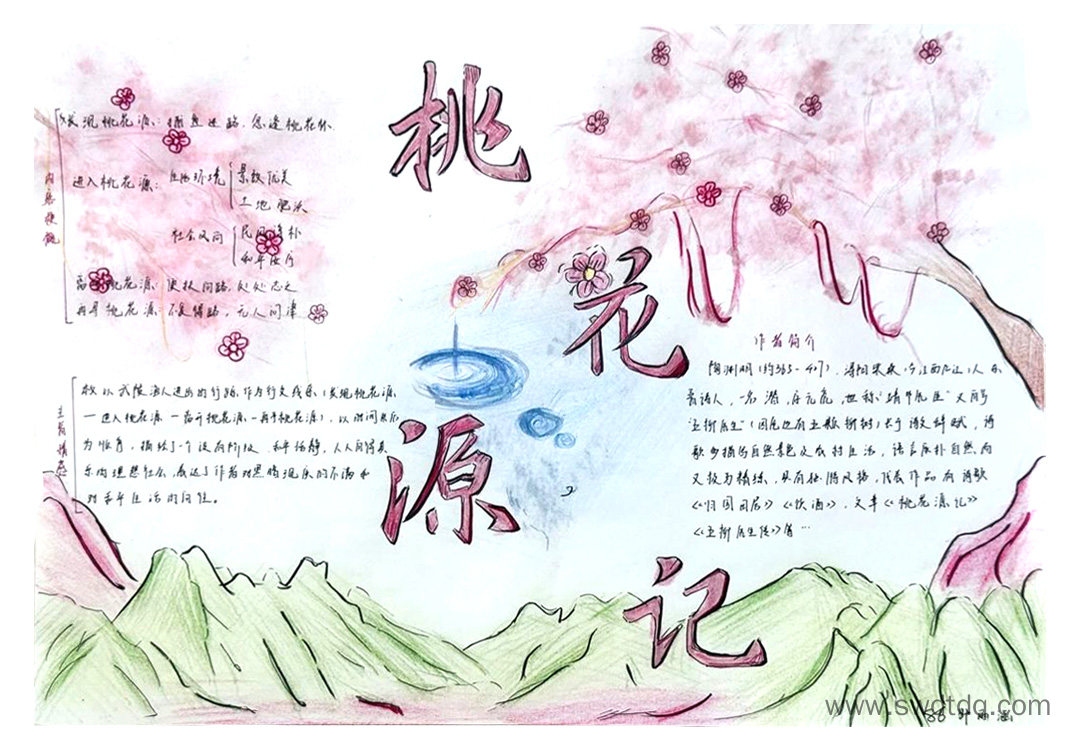 桃花源记
内容梗概
发现桃花源：捕鱼迷路，忽逢桃花林
进入桃花源：生活环境 景致优美
土地肥沃
社会风尚 民风淳朴
和平安宁
离开桃花源：便扶向路，处处志之
再寻桃花源：不复得路，无人问津
主旨情感
武陵渔人进出的行踪作为行文线索（发现桃花源
一进入桃花源一离开桃花源一再寻桃花源），以时间先后
为顺序，描绘了一个没有阶级 和平恬静，人人自得其
乐的理想社会，表达了作者对黑暗现实的不满和
对和平生活的向往。
作者简介
陶渊明（约365-427），浔阳柴桑（今江西九江）人 东
晋诗人，一名潜，字元亮，世称"靖节先生"又自号
"五柳先生"（因宅边有五颗柳树）长于散辞赋，诗
歌多描绘自然景色及农村生活，语言质朴自然而
又极为精练，具有独特风格，代表作品有诗歌
《归园田居》《饮酒》，文章《桃花源记》
《五柳先生传》等…
www.swgtdq.com